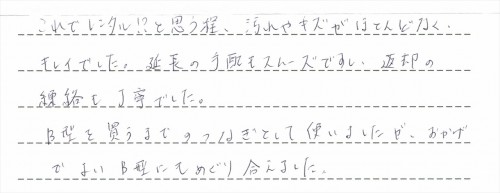 これでレンタル!?と思う程、汚れやキズがほとんどなく、
キレイでした。延長の手配もスムーズですし、返却の
連絡も丁寧でした。
B型を買うまでのつなぎとして使いましたが、おかげ
でよいB型にもめぐり合えました。